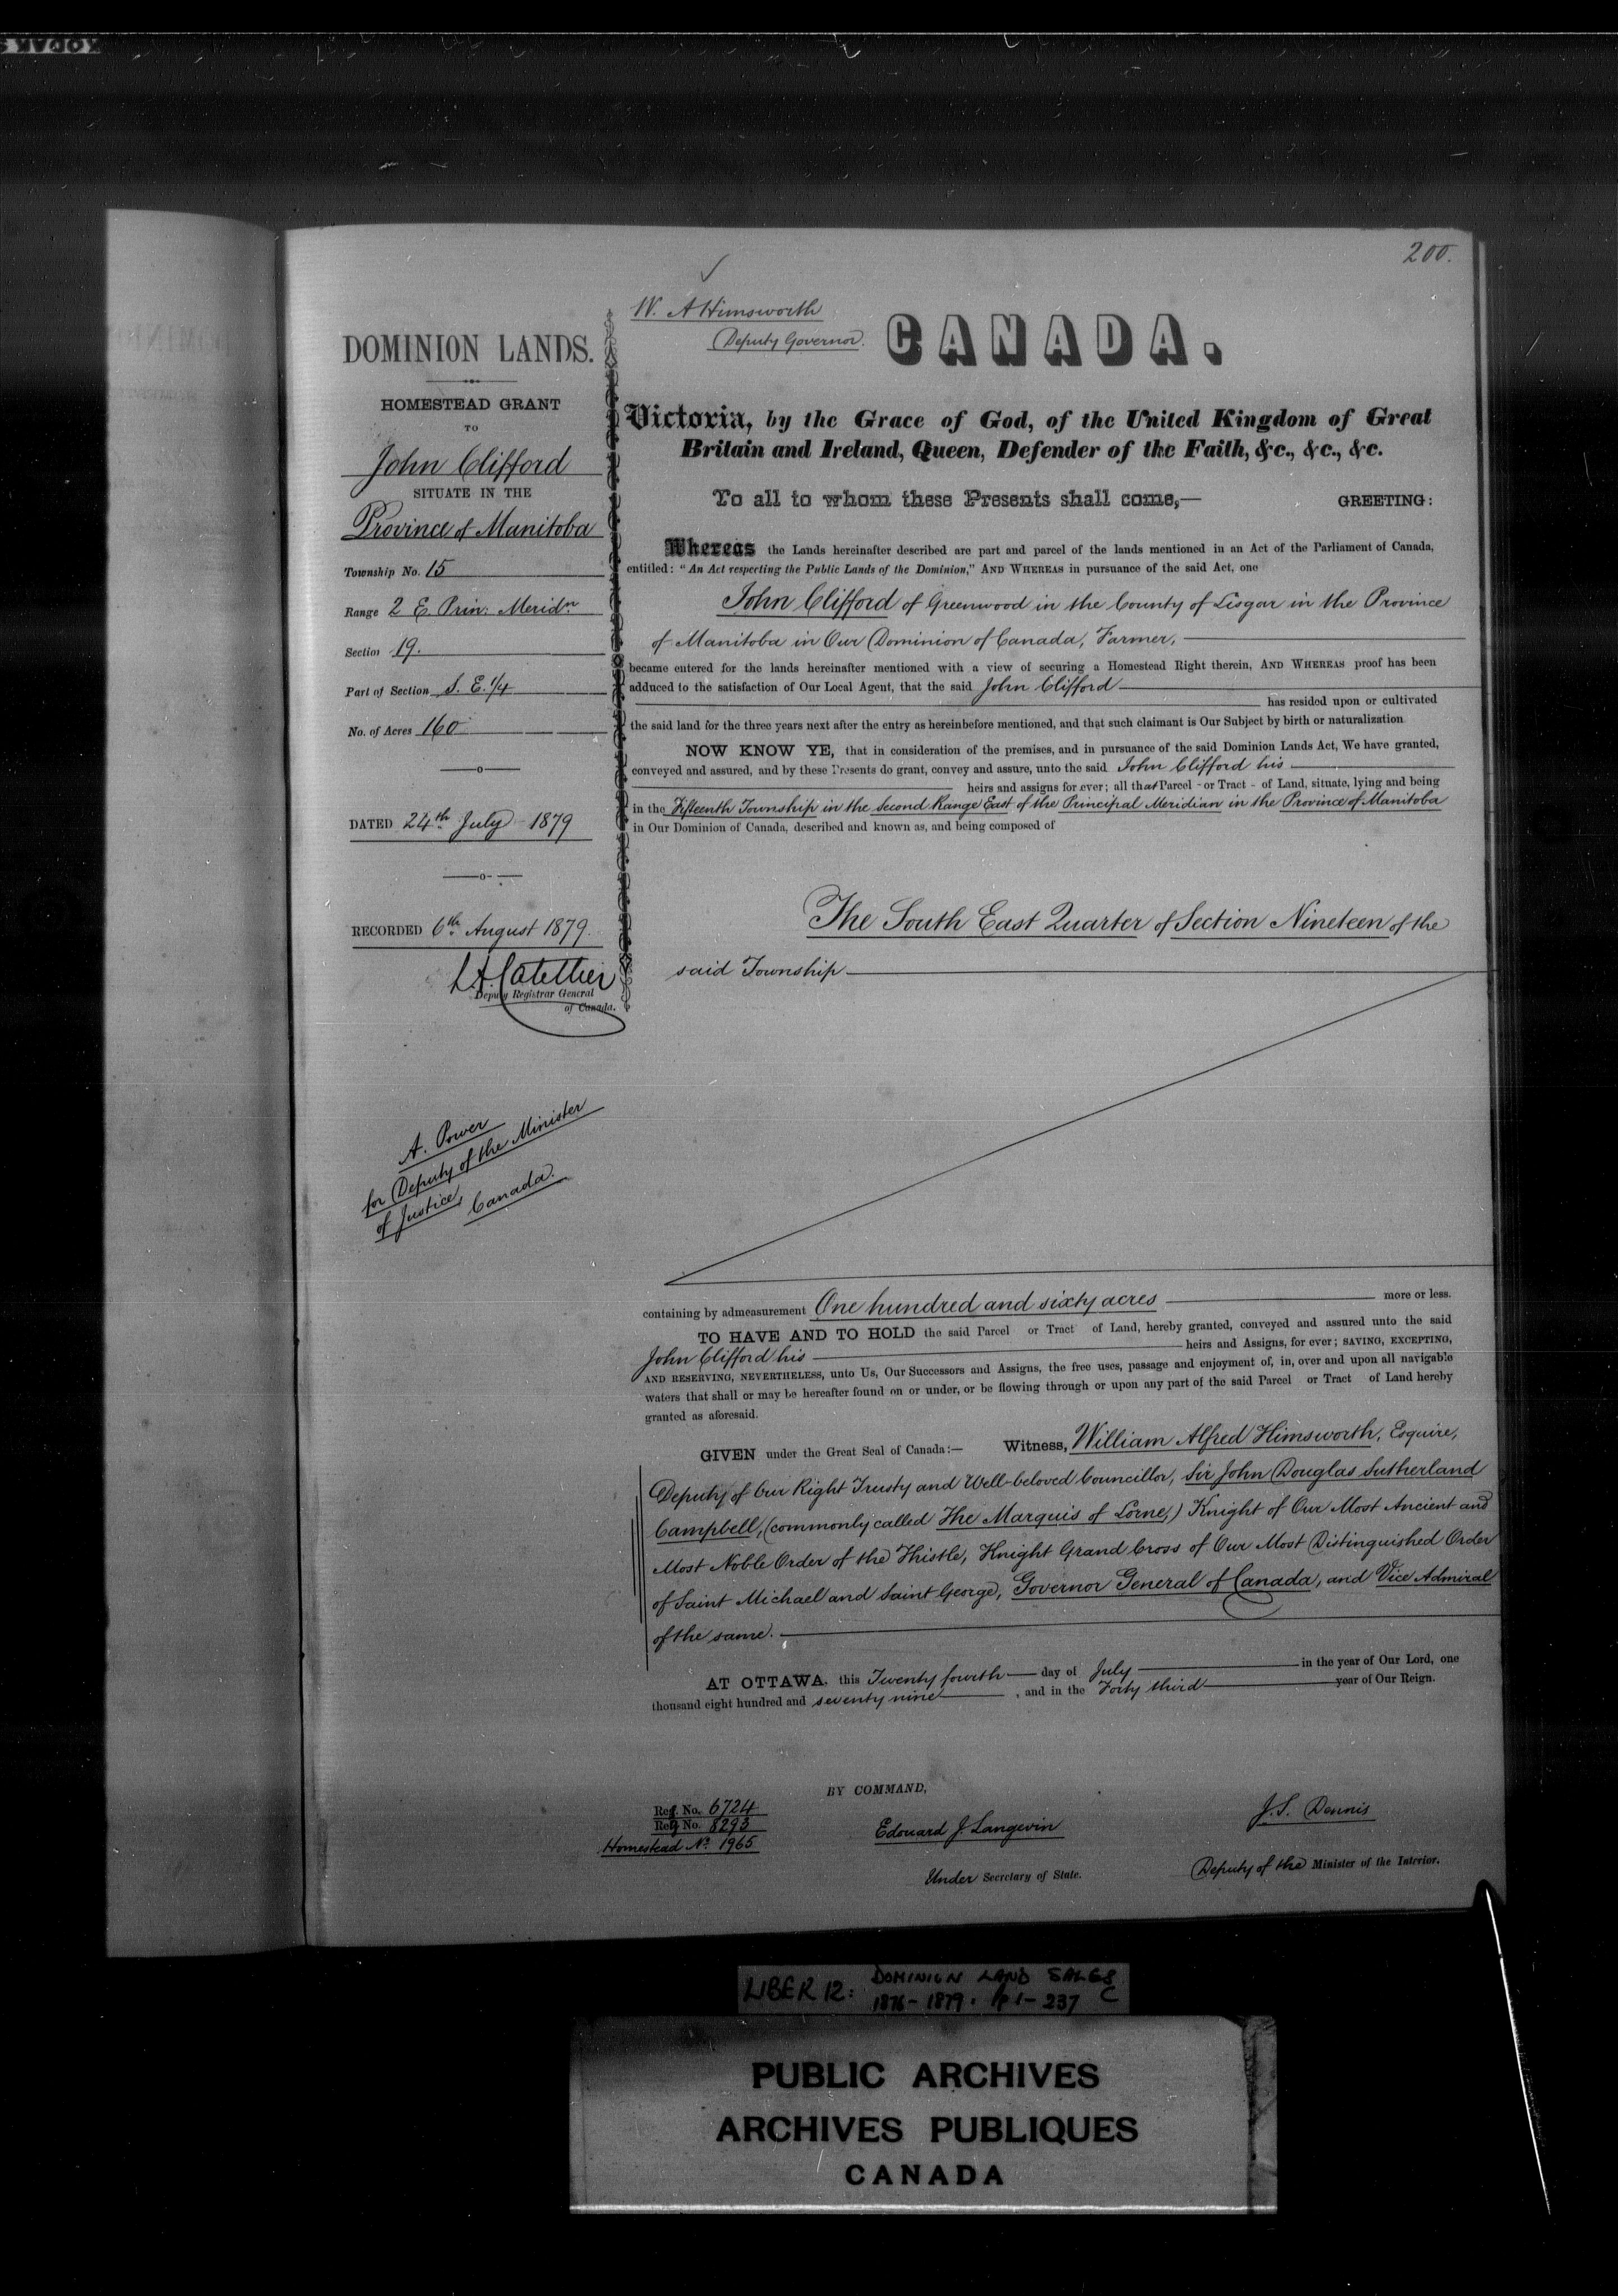 200.
DOMINION LANDS.
HOMESTEAD GRANT
TO
John Clifford
SITUATE IN THE
Province of Manitoba
Township No. 15
Range 2 E. Prin: Meridn
Section 19.
Part of Section S. E. 1/4
No. of Acres 160
DATED 24th July 1879
RECORDED 6th August 1879.
Deputy Registrar General
of Canada.
A. Power
for Deputy of the Minister
of Justice,
Canada.
W. A Himsworth
Deputy Governor.
CANADA.
Victoria, by the Grace of God, of the United Kingdom of Great
Britain and Ireland, Queen, Defender of the Faith, &c., &c., &c.
To all to whom these Presents shall come,— GREETING:
Whereas the Lands hereinafter described are part and parcel of the lands mentioned in an Act of the Parliament of Canada,
entitled: "An Act respecting the Public Lands of the Dominion," AND WHEREAS in pursuance of the said Act, one
John Clifford of Greenwood in the County of Lisgar in the Province
of Manitoba in Our Dominion of Canada, Farmer,
became entered for the lands hereinafter mentioned with a view of securing a Homestead Right therein, AND WHEREAS proof has been
adduced to the satisfaction of Our Local Agent, that the said John Clifford
has resided upon or cultivated
the said land for the three years next after the entry as hereinbefore mentioned, and that such claimant is Our Subject by birth or naturalization
NOW KNOW YE, that in consideration of the premises, and in pursuance of the said Dominion Lands Act, We have granted,
conveyed and assured, and by these Presents do grant, convey and assure, unto the said John Clifford his
heirs and assigns for ever; all that Parcel or Tract of Land, situate, lying and being
in the Fifteenth Township in the Second Range East of the Principal Meridian in the Province of Manitoba
in Our Dominion of Canada, described and known as, and being composed of
The South East Quarter of Section Nineteen of the
said Township
containing by admeasurement One hundred and sixty acres more or less.
TO HAVE AND TO HOLD the said Parcel or Tract of Land, hereby granted, conveyed and assured unto the said
John Clifford his heirs and Assigns, for ever; SAVING, EXCEPTING,
AND RESERVING, NEVERTHELESS, unto Us, Our Successors and Assigns, the free uses, passage and enjoyment of, in, over and upon all navigable
waters that shall or may be hereafter found on or under, or be flowing through or upon any part of the said Parcel or Tract of Land hereby
granted as aforesaid.
GIVEN under the Great Seal of Canada:— Witness, William Alfred Himsworth, Esquire,
Deputy of Our Right Trusty and Well-beloved Councillor, Sir John Douglas Sutherland
Campbell, (commonly called The Marquis of Lorne,) Knight of Our Most Ancient and
Most Noble Order of the Thistle, Knight Grand Cross of Our Most Distinguished Order
of Saint Michael and Saint George, Governor General of Canada, and Vice Admiral
of the same.
AT OTTAWA, this Twenty fourth day of July in the year of Our Lord, one
thousand eight hundred and seventy nine, and in the Forty third year of Our Reign.
BY COMMAND,
Ref. No. 6724
Reg No. 8293
Homestead No. 1965
Edouard J. Langevin
Under Secretary of State.
J. S. Dennis
Deputy of the Minister of the Interior.
LIBER 12: DOMINION LAND SALES
1876-1879. pp 1-237 C
PUBLIC ARCHIVES
ARCHIVES PUBLIQUES
CANADA